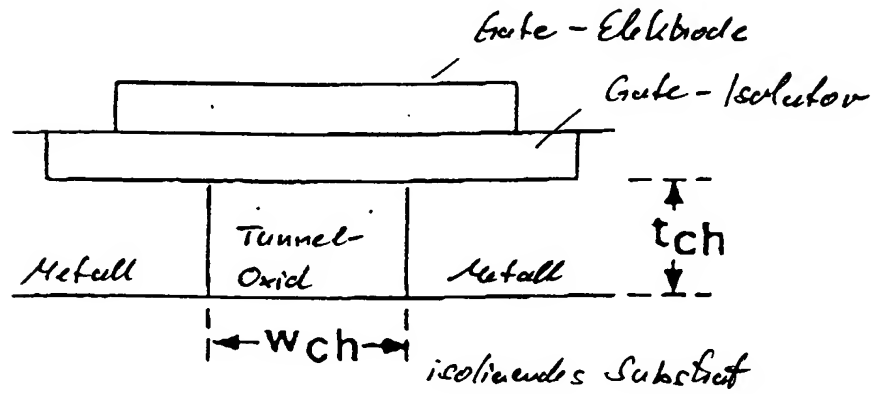 Gate-Elektrode
Gate-Isolator
tch
Tunnel-
Oxid
Metall
Metall
wch
isolierendes Substrat